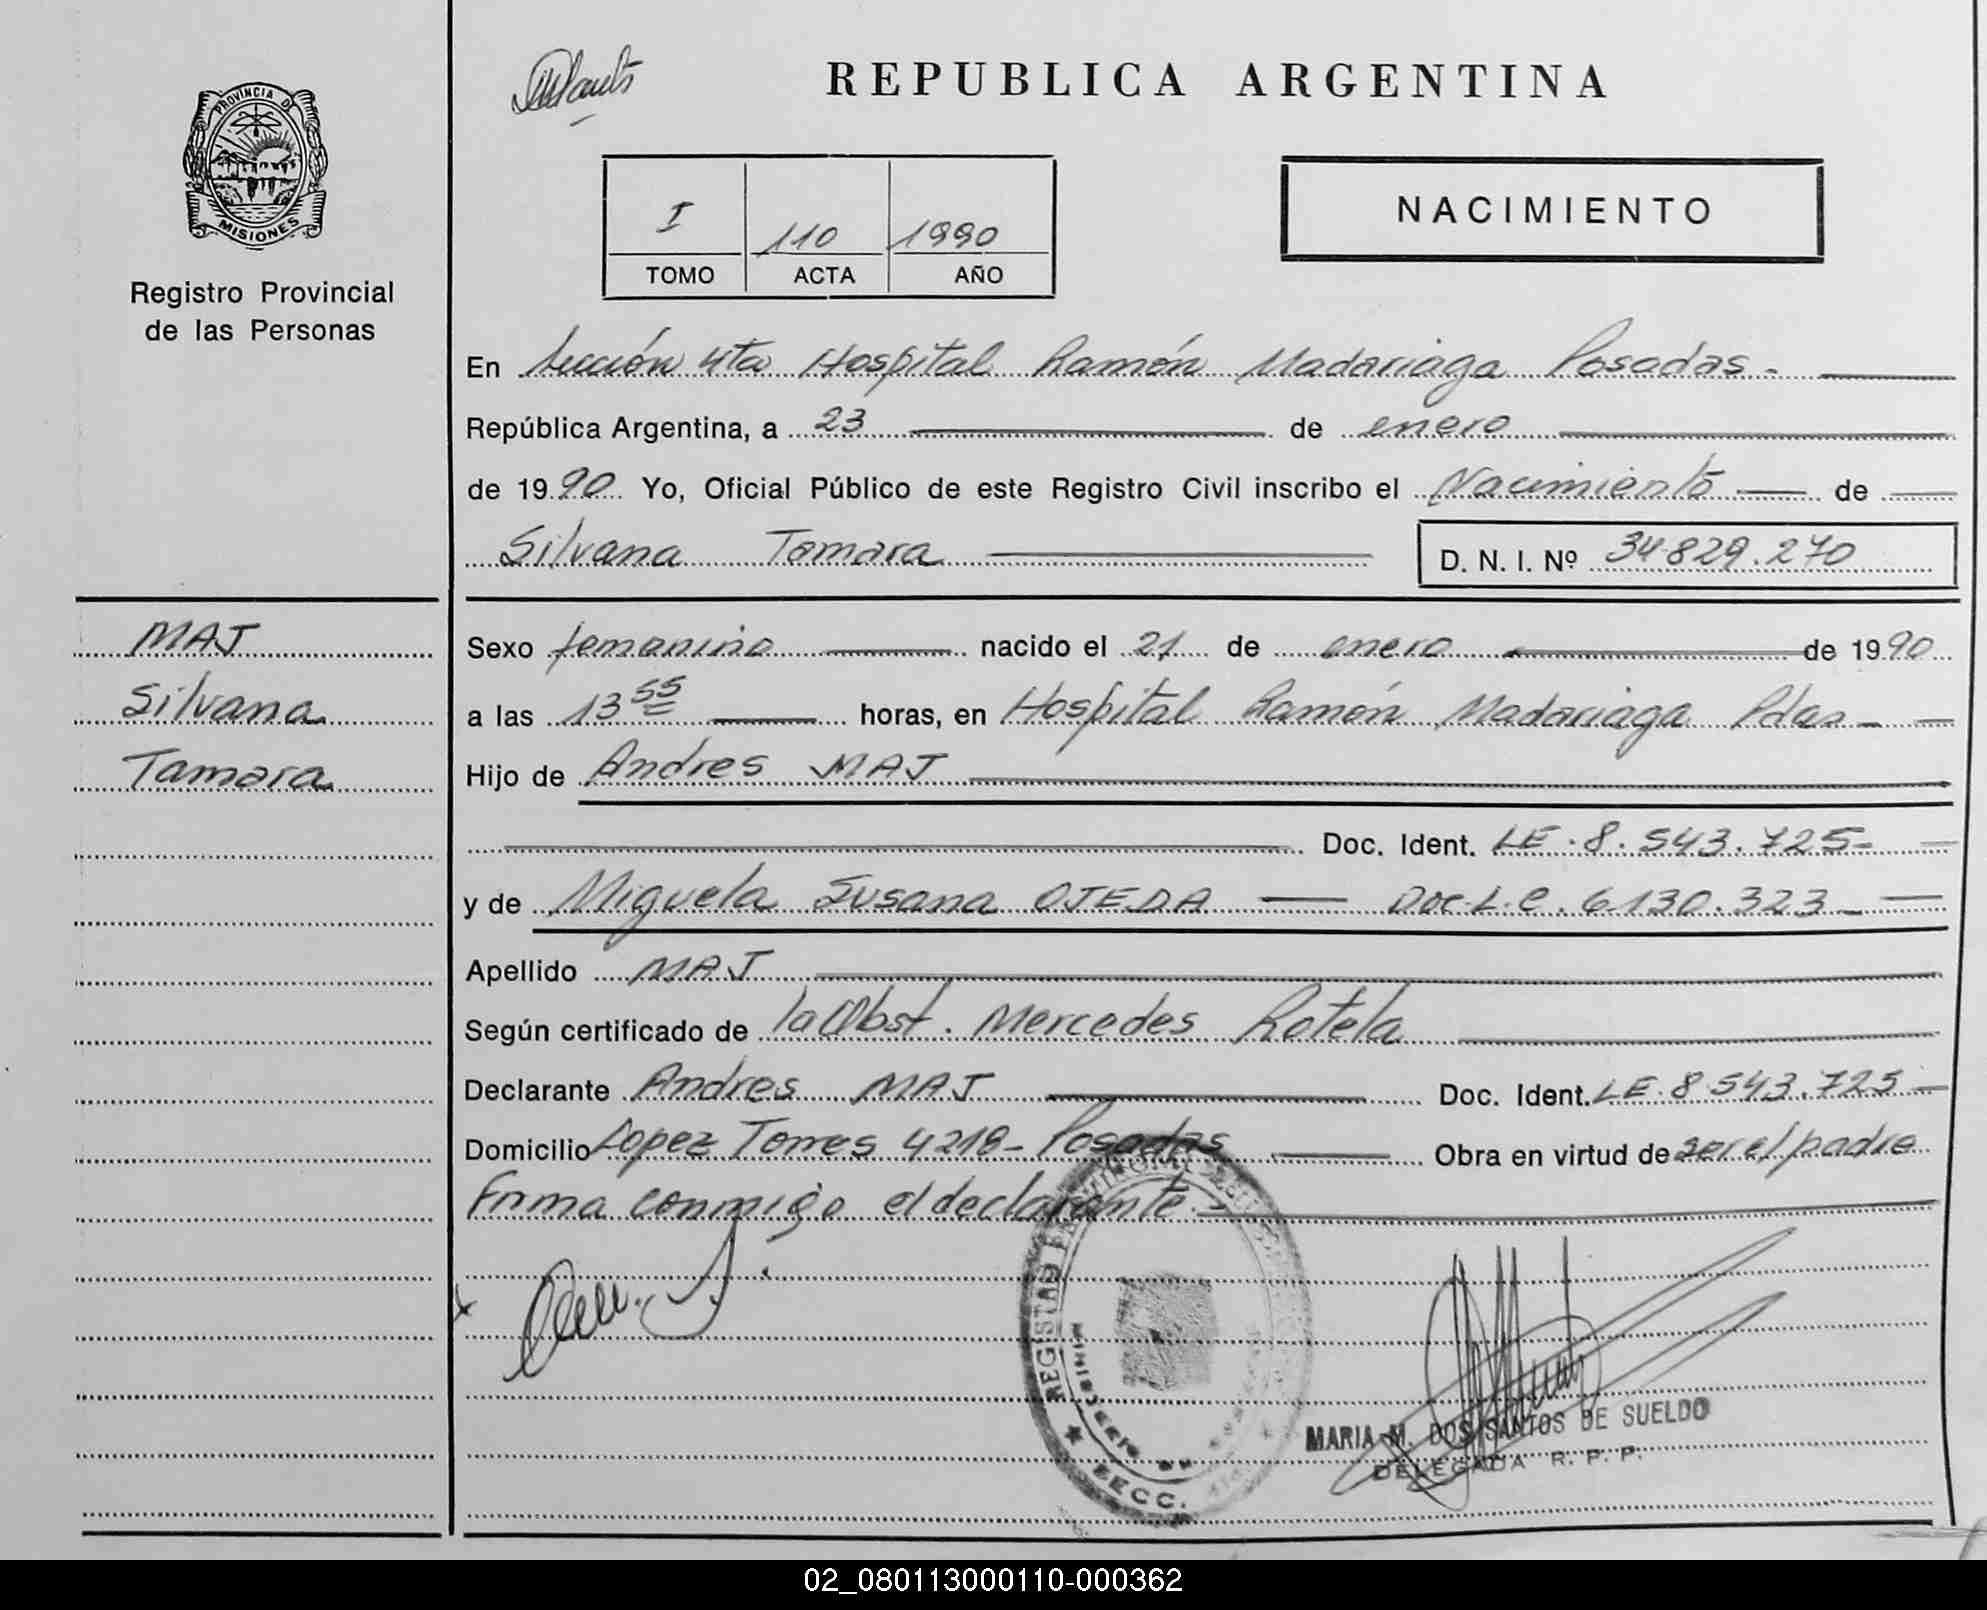 REPUBLICA ARGENTINA
PROVINCIA DE
MISIONES
Registro Provincial
de las Personas
I 110 1990
TOMO ACTA AÑO
NACIMIENTO
En Sección 4ta Hospital Ramón Madariaga Posadas.-
República Argentina, a 23 de enero
de 1990 Yo, Oficial Público de este Registro Civil inscribo el Nacimiento de
Silvana Tamara D. N. I. Nº 34.829.270
MAJ
Silvana
Tamara
Sexo femenino nacido el 21 de enero de 1990
a las 13 55 horas, en Hospital Ramón Madariaga Pdas-
Hijo de Andres MAJ
Doc. Ident. LE.8.543.725-
y de Miguela Susana OJEDA Doc.L.C.6.130.323-
Apellido MAJ
Según certificado de la Obst. Mercedes Rotela
Declarante Andres MAJ Doc. Ident. LE.8.543.725-
Domicilio Lopez Torres 4218- Posadas Obra en virtud de ser el padre
Firma conmigo el declarante-
MARIA M. DOS SANTOS DE SUELDO
DELEGADA R. P. P.
SECC.
02_080113000110-000362